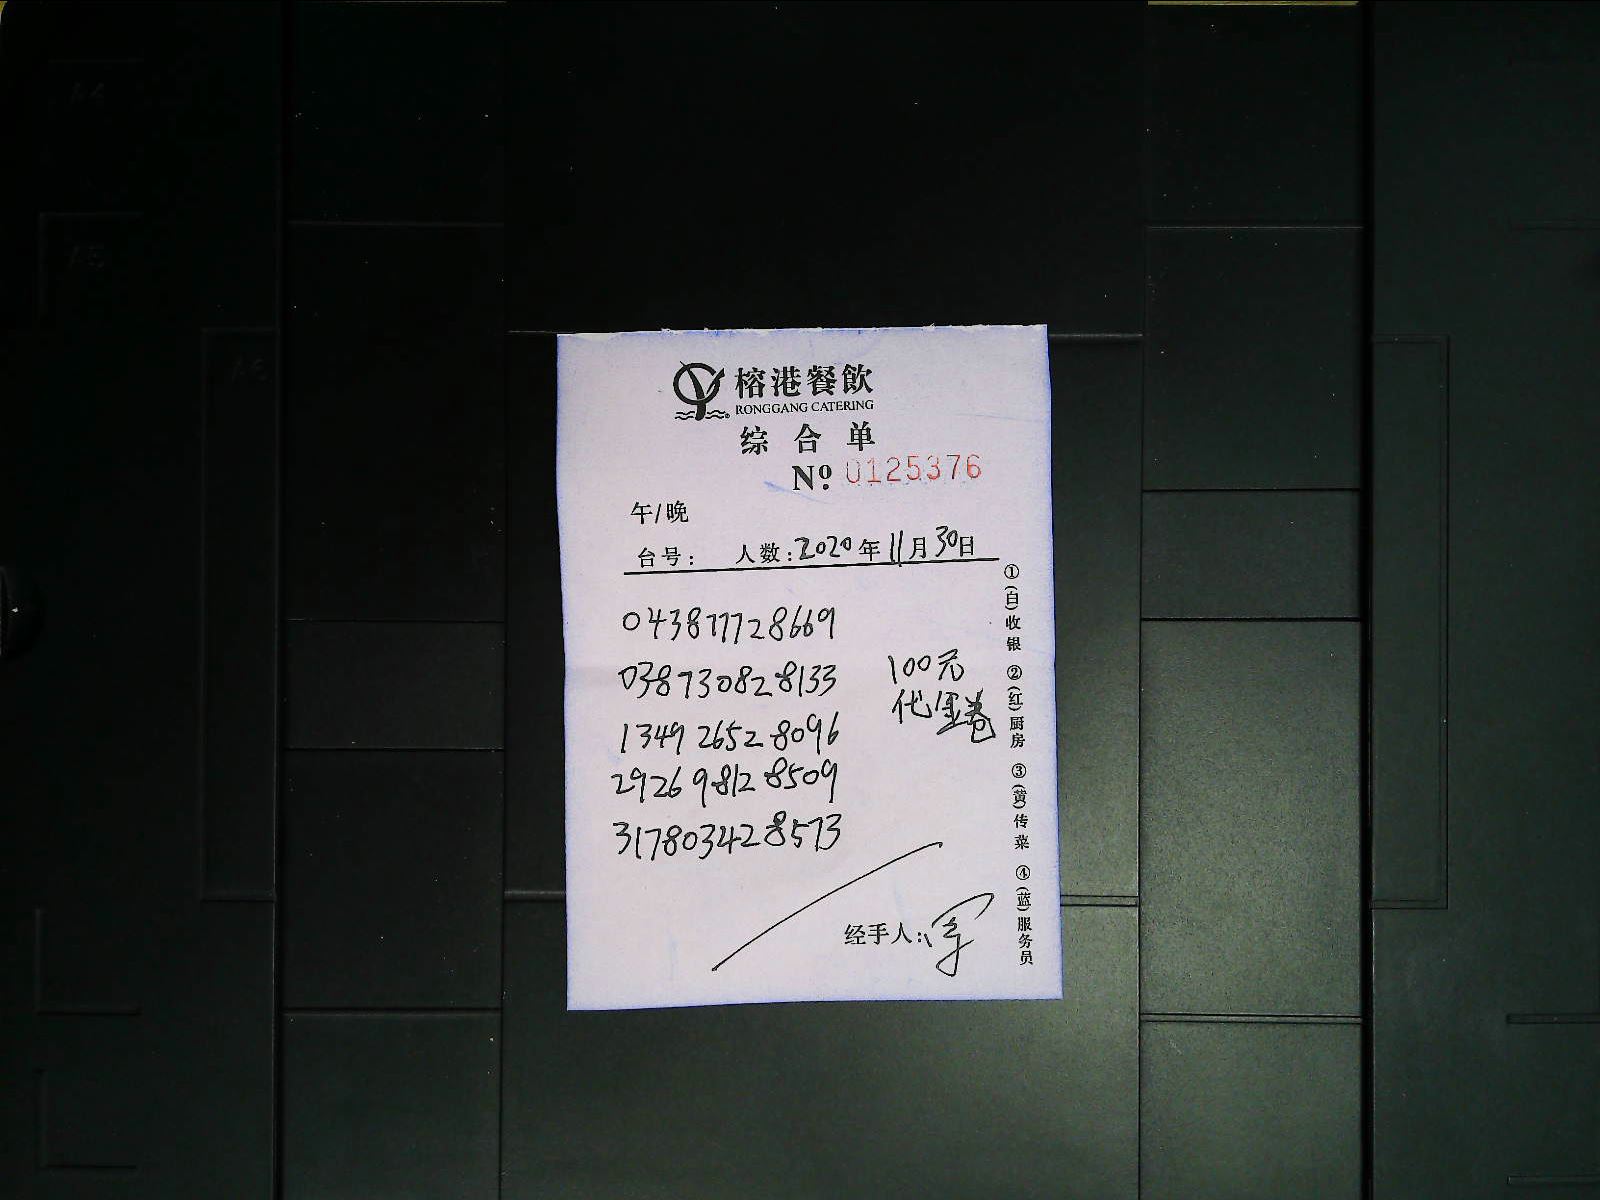 榕港餐飲
RONGGANG CATERING
综合单
Nº. 0125376
午/晚
台号: 人数: 2020年11月30日
043877728669
038730828133
134926528096
292698128509
317803428573
100元
代金卷
经手人:
①(白)收银 ②(红)厨房 ③(黄)传菜 ④(蓝)服务员